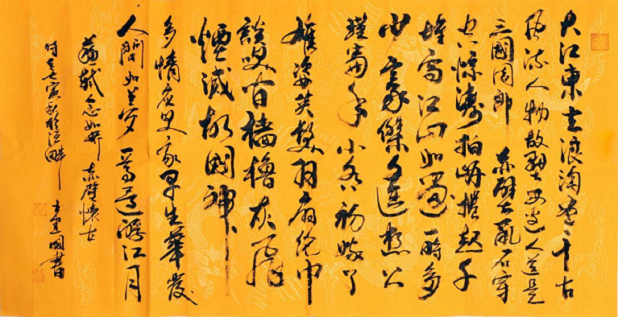 大江東去浪淘盡千古
風流人物故壘西邊人道是
三國周郎赤壁亂石穿
空驚濤拍岸捲起千
堆雪江山如畫一時多
少豪傑遙想公
瑾當年小喬初嫁了
雄姿英發羽扇綸巾
談笑間檣櫓灰飛
煙滅故國神
多情應笑我早生華發
人間如夢一尊還酹江月
蘇軾念奴嬌赤壁懷古
時壬寅秋於江畔建國書